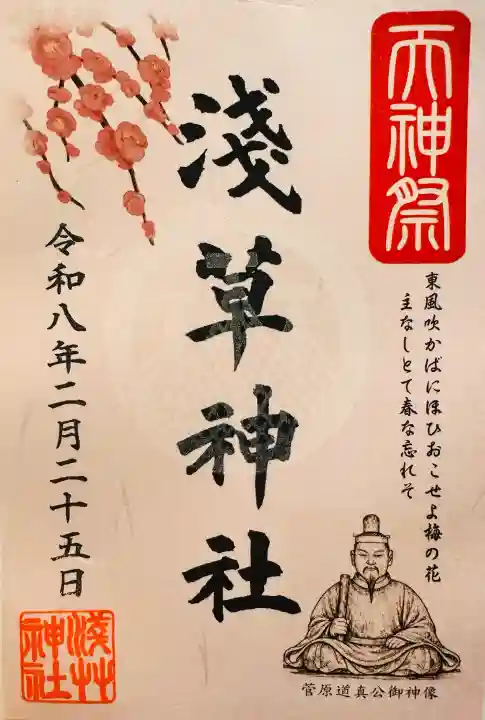 天神祭
東風吹かばにほひおこせよ梅の花
主なしとて春な忘れそ
菅原道真公御神像
淺草神社
令和八年二月二十五日
淺艸
神社